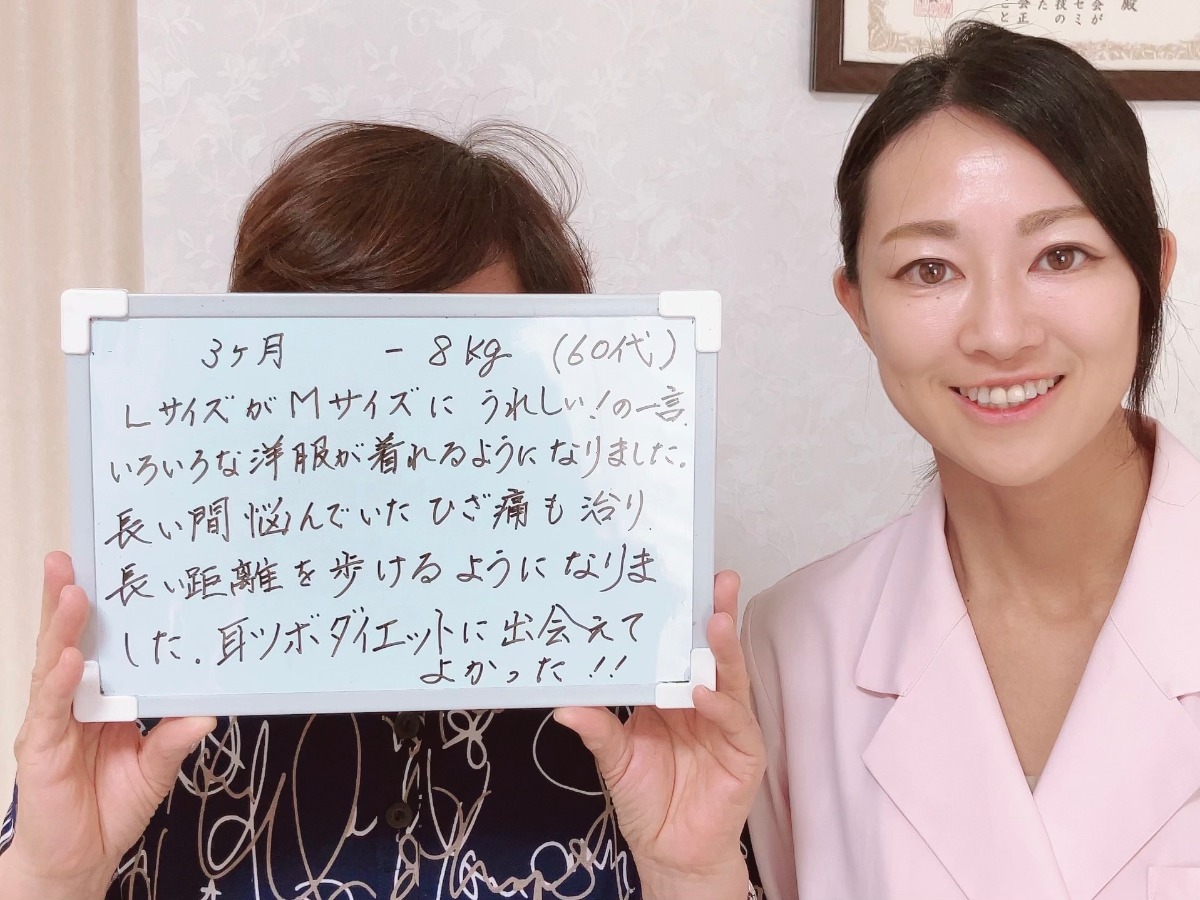 殿
会が
セミ
技の
た
会正
こと
3ケ月 -8kg (60代)
LサイズがMサイズに うれしい!の一言.
いろいろな洋服が着れるようになりました.
長い間悩んでいたひざ痛も治り.
長い距離を歩けるようになりま
した.耳ツボダイエットに出会えて
よかった!!